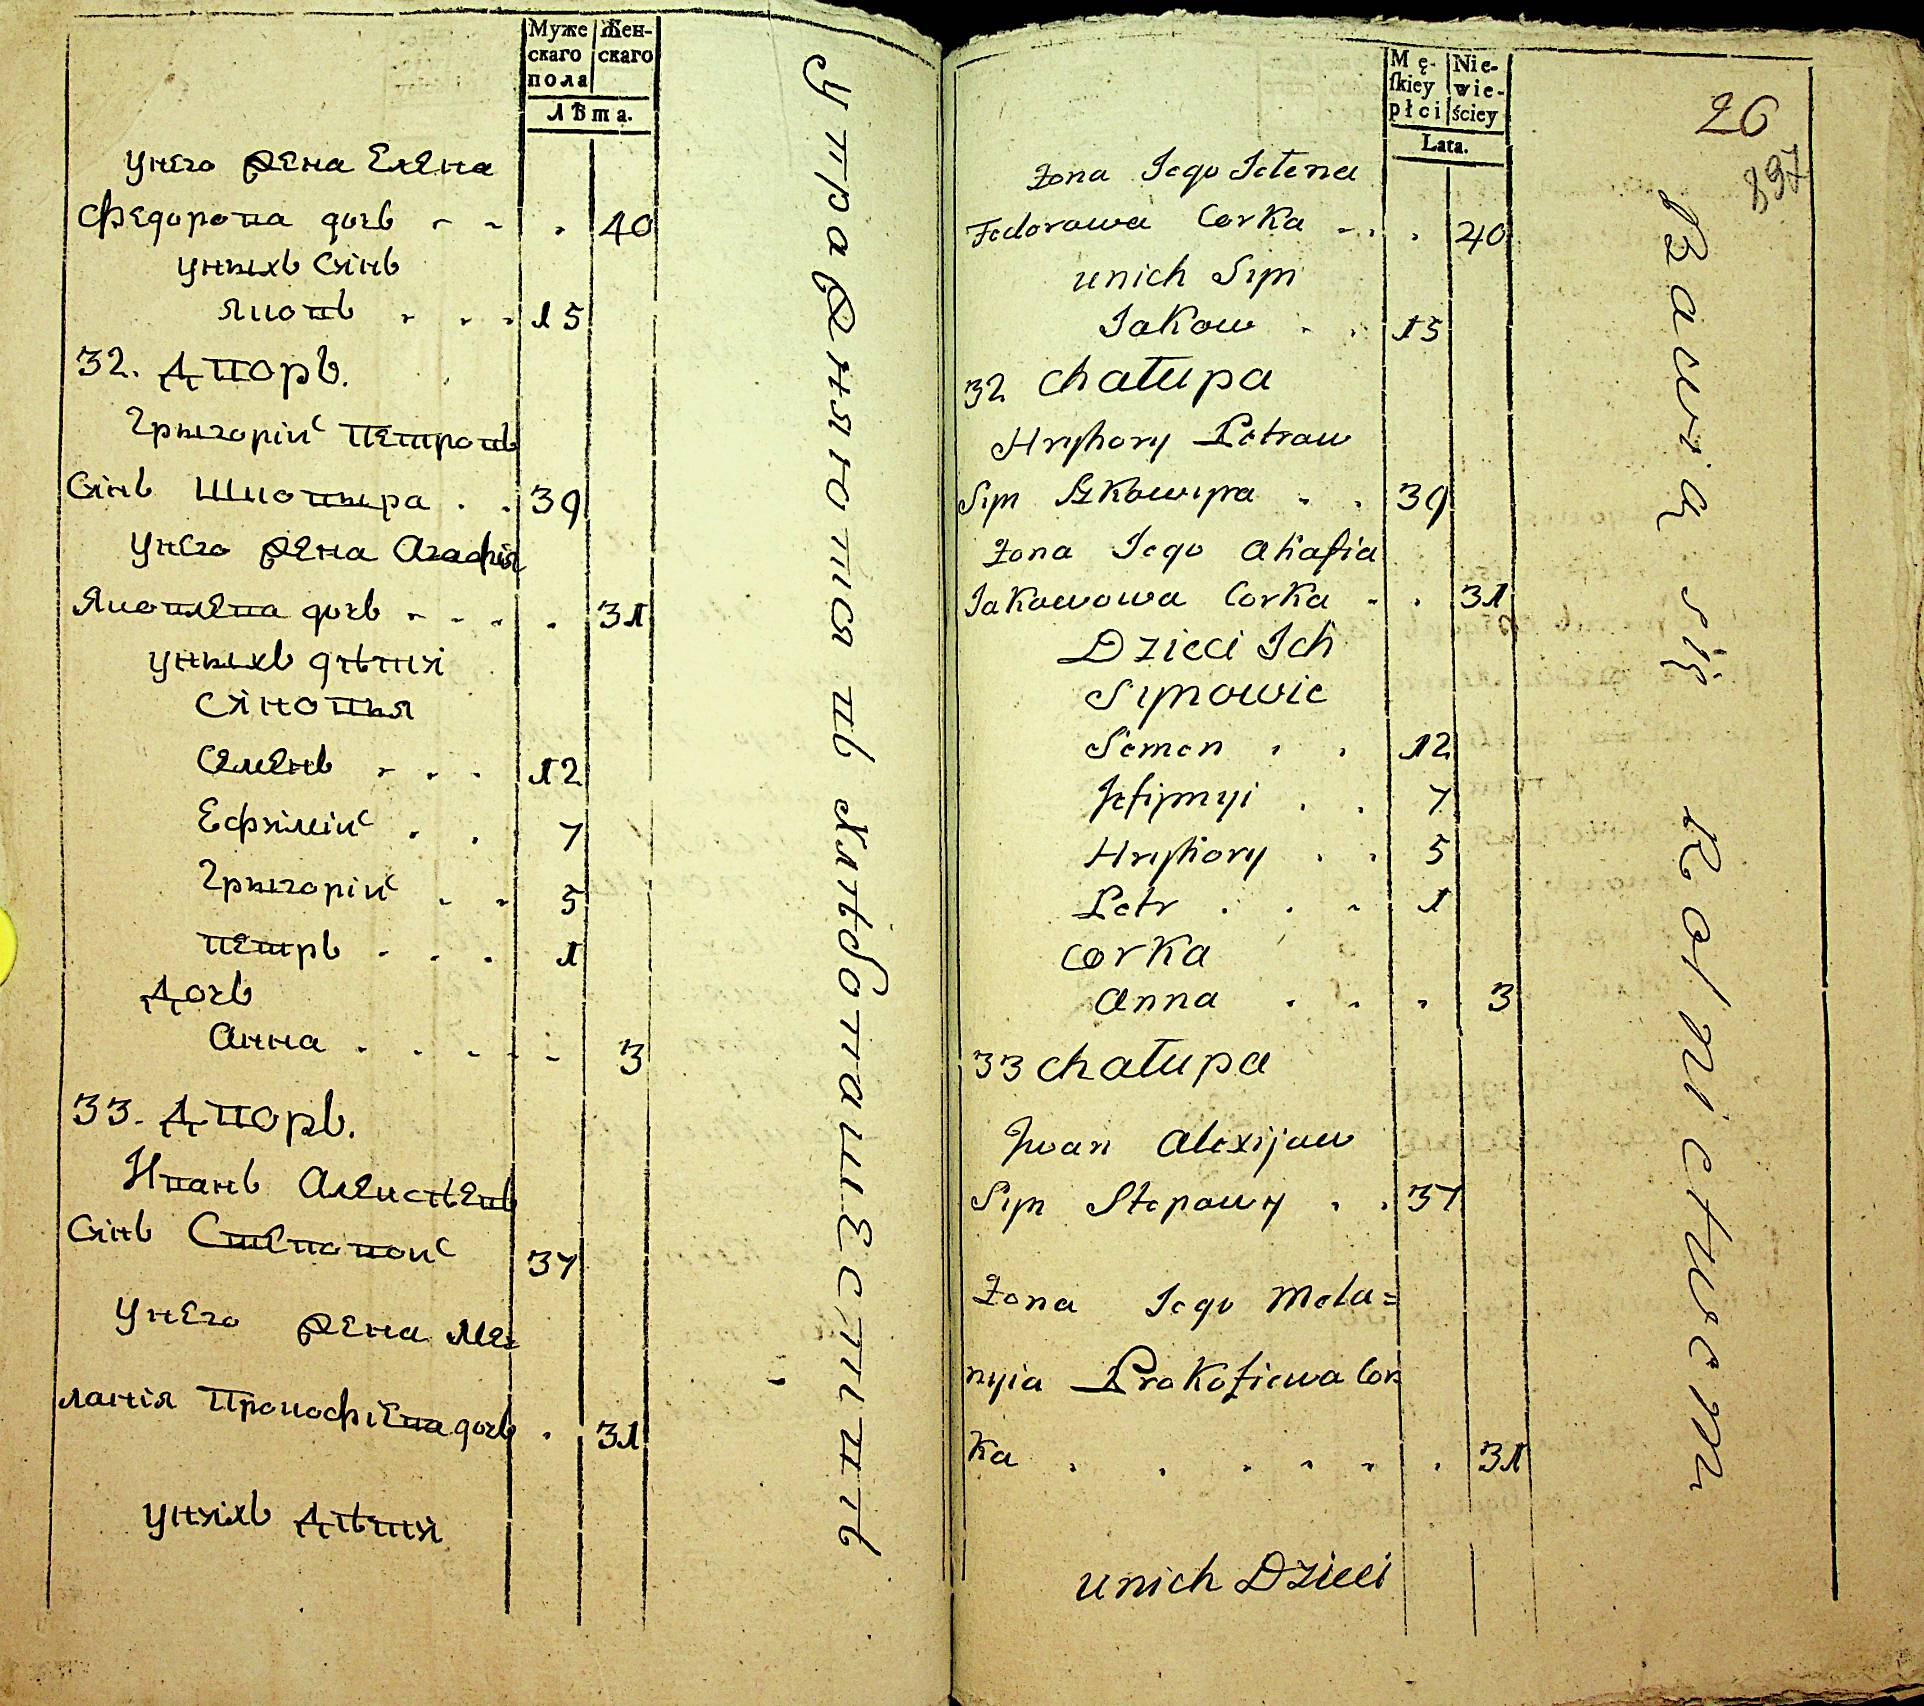 Муже
скаго
пола
Жен-
скаго
Лѣта.
унего жена Елена
Федорова дочь - - . 40
уныхъ Синъ
Яковъ . . . 15
32. Дворъ.
Грыгорій Петровъ
Синъ Шковыра . . 39
унего жена Агафія
Яковлева дочь - - - . 31
уныхъ дѣтӣ
Синовья
Семенъ - . . 12
Ефимій . . 7
Грыгорій . . 5
Петръ . . . 1
Дочь
Анна . . . . - 3
33. Дворъ.
Иванъ Алексѣевъ
Синъ Степовой 37
унего жена Ме=
ланія Прокофіева дочь . 31
унихъ Дѣти
упражняются въ хлѣбопашествѣ
Mę-
ſkiey
płci
Nie-
wie-
ściey
Lata.
26
897
żona Jego Jelena
Fedorowa Corka - . . 40
unich Syn
Jakow . . 15
32 chałupa
Hryhory Petrow
Syn Szkowyra . . 39
żona Jego Ahafia
Jakowowa Corka . . 31
Dzieci Ich
Synowie
Semen . . 12
Jefimyi . . 7
Hryhory . . 5
Petr . . . 1
corka
anna . . . 3
33 chałupa
Jwan Alexijew
Syn Stepowy . . 37
żona Jego Mela=
nyia Prokofiewa Cor
ka . . . . . . . 31
unich Dzieci
Bawią się Rolnictwem